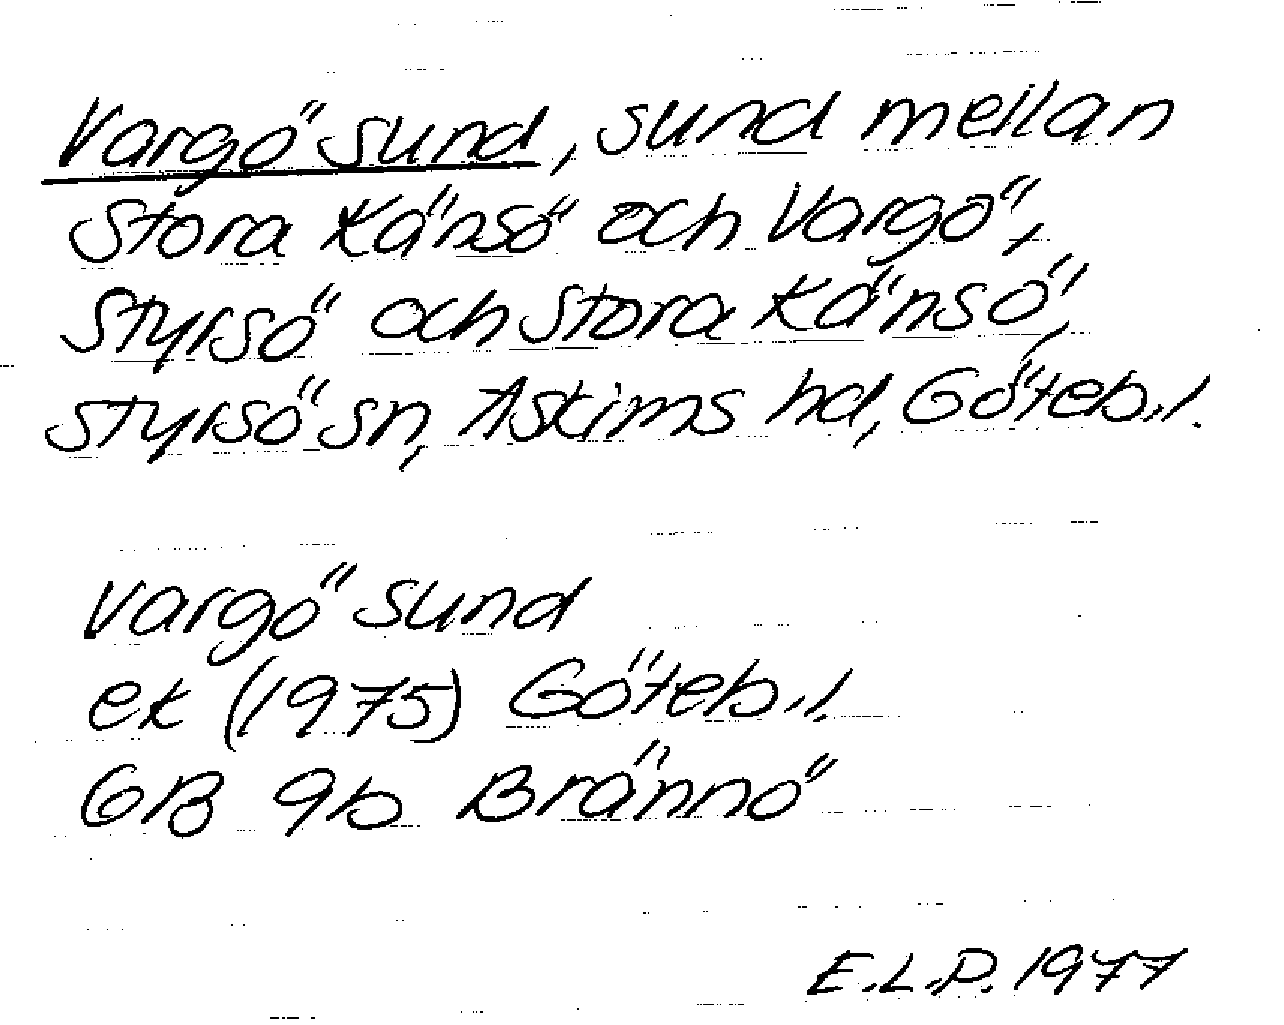 Vargö sund, sund mellan
Stora Känsö och Vargö,
Styrsö och Stora Känsö,
Styrsö sn, Askims hd, Göteb.l.
Vargö sund
ek (1975) Göteb.l.
GB 9b Brännö
E.L.P. 1977